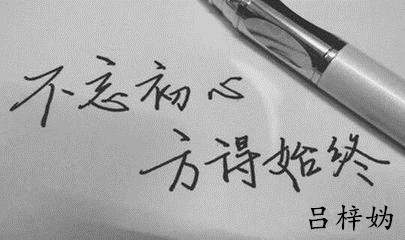 不忘初心
方得始终
吕梓妫